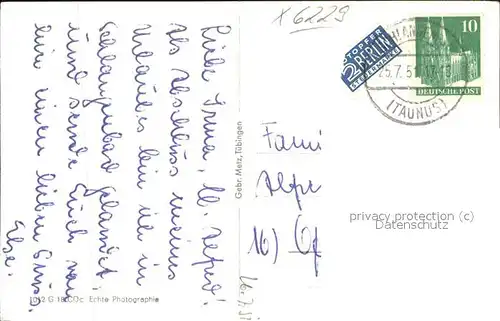 x 6229
NOTOPFER
2 BERLIN
STEUERMARKE
10
DEUTSCHE POST
25.7.51
(TAUNUS)
Liebe Irma, lb. Alfred!
Als Abschluss meines
Urlaubes bin ich in
Schlangenbad gelandet
und sende Euch von
hier einen lieben Gruss.
Else.
Gebr. Metz, Tübingen
1012 G 18 COc Echte Photographie
Fami
Alfre
16) Of
privacy protection (c)
Datenschutz